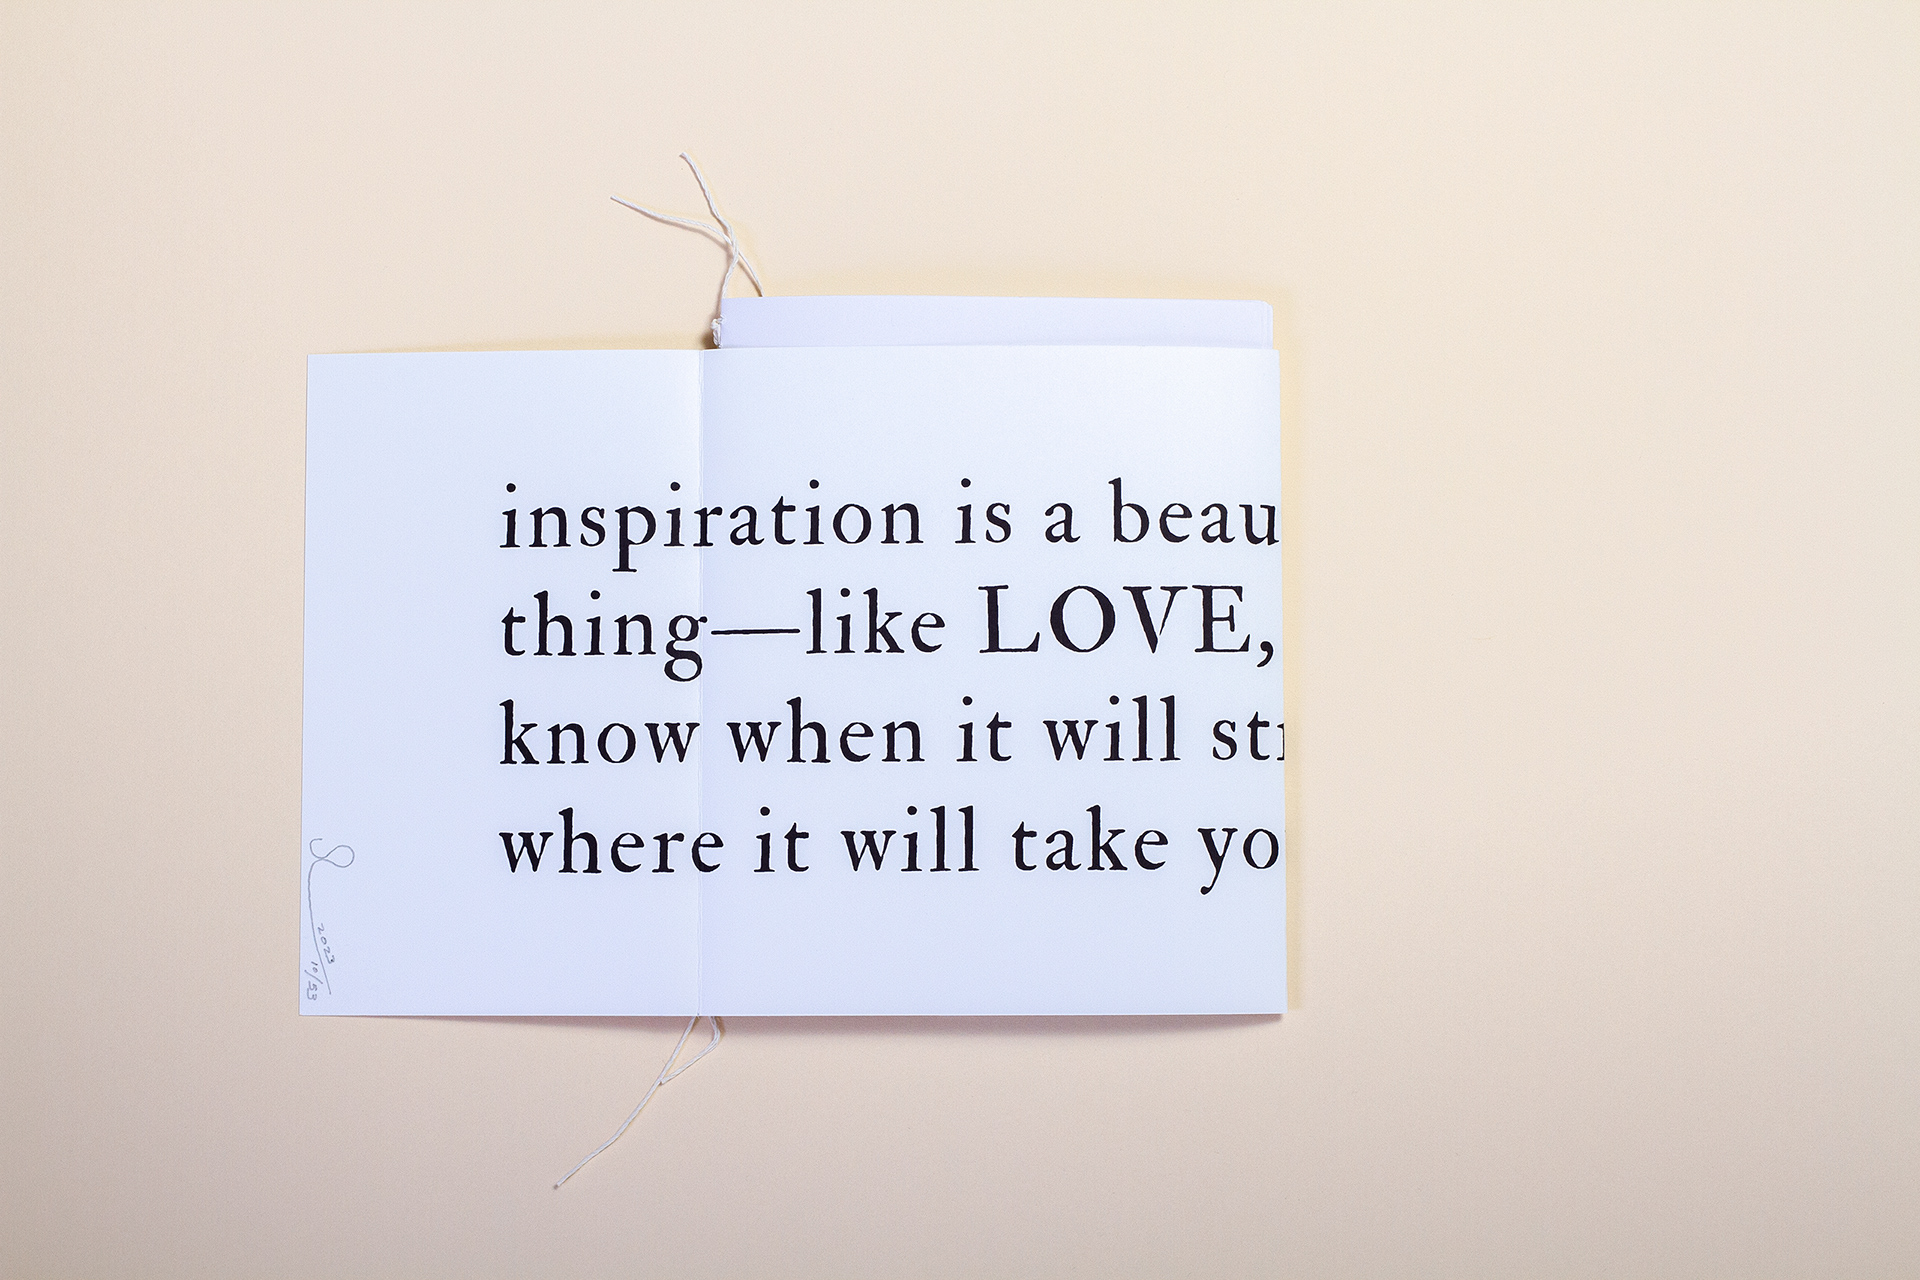 inspiration is a beau
thing—like LOVE,
know when it will str
where it will take yo
2023
10/53